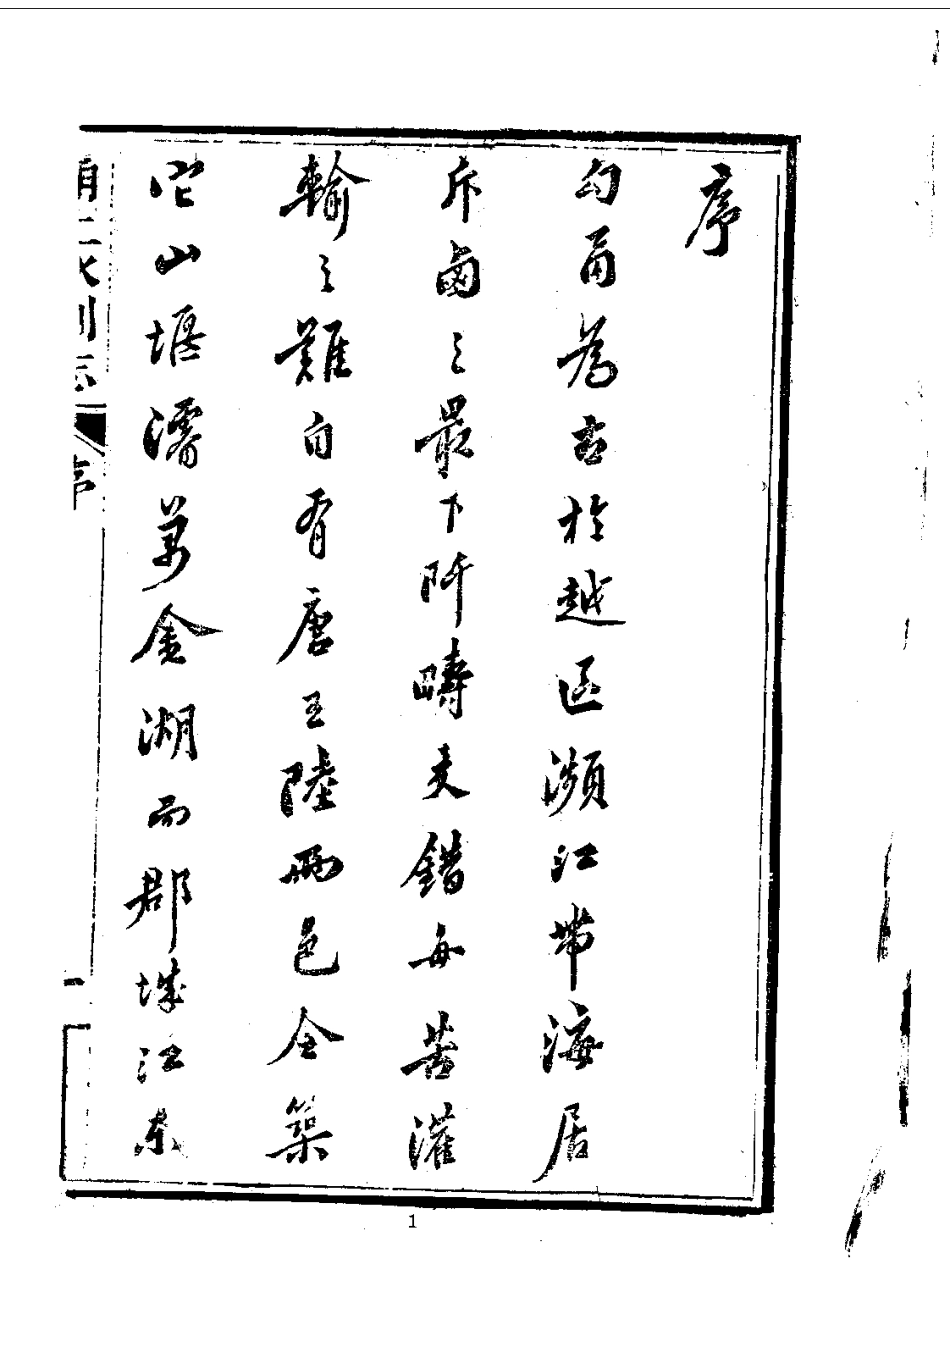 序
勾甬為古於越區瀕江帶海居
斥鹵之最下阡疇交錯每苦灌
輸之難自有唐王陸兩邑令築
它山堰濬萬金湖而郡城江東
水利志
序
一
1